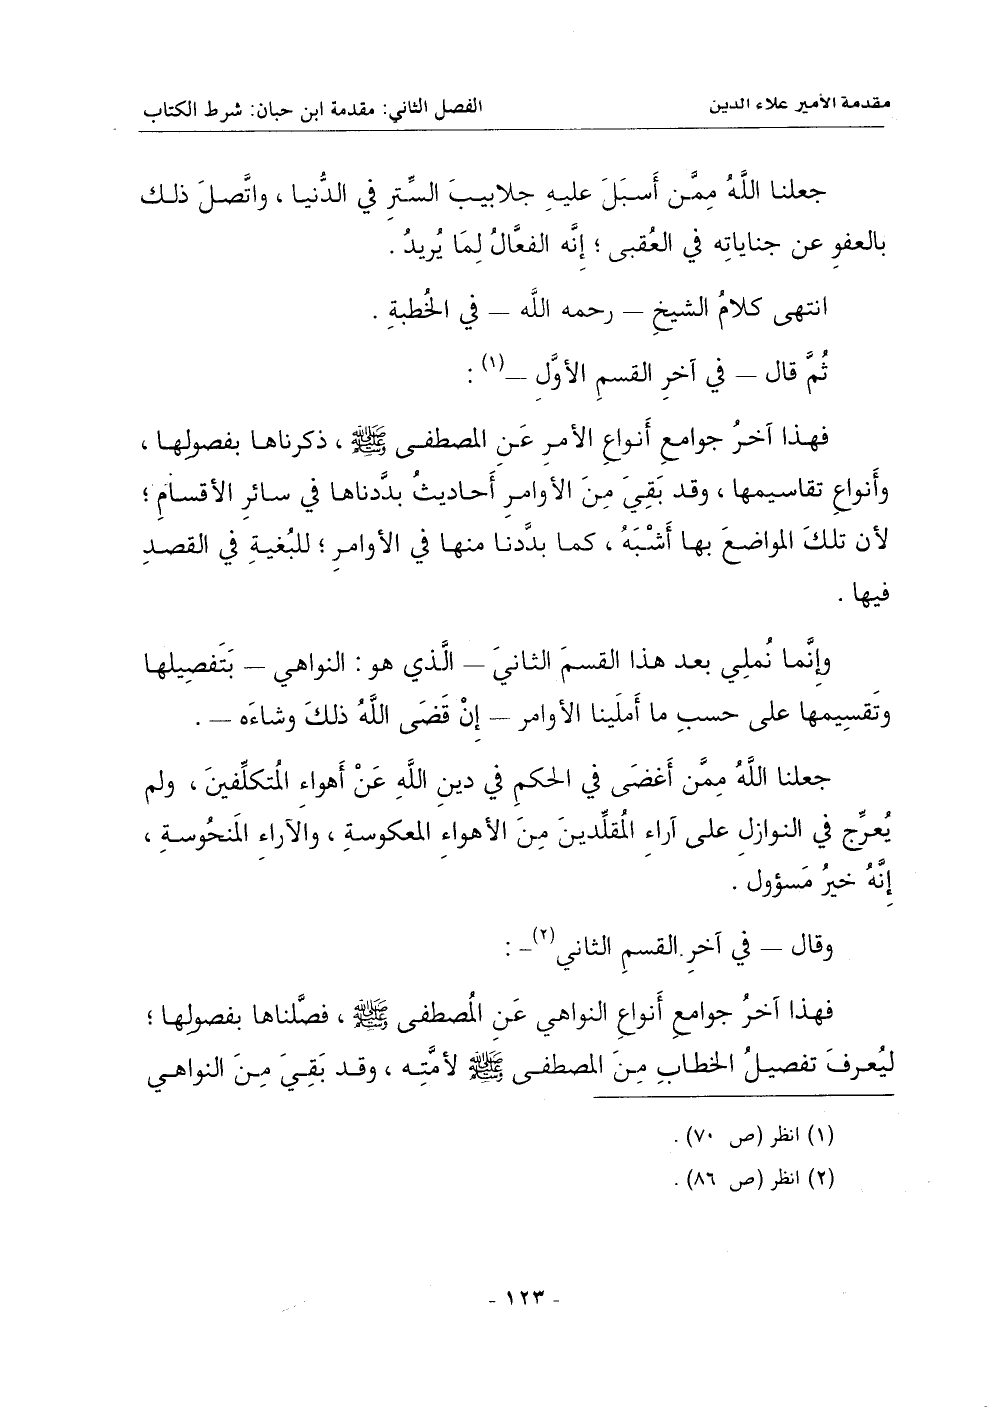 مقدمة الأمير علاء الدين
الفصل الثاني: مقدمة ابن حبان: شرط الكتاب
جعلنا اللَّهُ مِمَّن أَسبَلَ عليهِ جلابيبَ السِّترِ في الدُّنيا ، واتَّصلَ ذلك
بالعفوِ عن جناياتِه في العُقبى ؛ إنَّه الفعَّالُ لِمَا يُريدُ .
انتهى كلامُ الشيخِ – رحمه اللَّه – في الخُطبةِ .
ثُمَّ قال – في آخرِ القسمِ الأوَّلِ –(١) :
فهذا آخرُ جوامعِ أنواعِ الأمرِ عَنِ المصطفى ﷺ ، ذكرناها بفصولِها ،
وأَنواعِ تقاسيمها ، وقد بَقِيَ مِنَ الأوامرِ أَحاديثُ بدَّدناها في سائرِ الأقسامِ ؛
لأن تلكَ المواضعَ بها أَشْبَهُ ، كما بدَّدنا منها في الأوامرِ ؛ للبُغيةِ في القصدِ
فيها .
وإنَّما نُملِي بعد هذا القسمَ الثانيَ – الَّذي هو : النواهي – بَتَفصِيلها
وتَقسِيمها على حسبِ ما أَملَينا الأوامر – إنْ قَضَى اللَّهُ ذلكَ وشاءَه – .
جعلنا اللَّهُ ممَّن أَغضَى في الحكمِ في دينِ اللَّهِ عَنْ أَهواءِ المُتكلِّفينَ ، ولم
يُعرِّج في النوازلِ على آراءِ المُقلِّدينَ مِنَ الأهواءِ المعكوسةِ ، والآراءِ المَنحُوسةِ ،
إنَّهُ خيرُ مَسؤول .
وقال – في آخرِ القسمِ الثاني(٢)- :
فهذا آخرُ جوامعِ أَنواعِ النواهي عَنِ المُصطفى ﷺ ، فصَّلناها بفصولِها ؛
ليُعرفَ تفصيلُ الخطابِ مِنَ المصطفى ﷺ لأمَّتِه ، وقد بَقِيَ مِنَ النواهي
(١) انظر (ص ٧٠) .
(٢) انظر (ص ٨٦) .
- ١٢٣ -